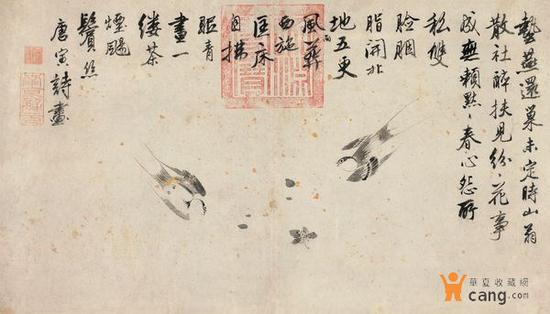 蟄燕還巢未定時山翁
散社醉扶兒紛々花事
成無賴默々春心怨所
私雙
臉胭
脂開北
地五更
風雨葬
西施
匡床
自拂
眠青
晝一
縷茶
煙颺
鬢絲
唐寅詩畫
華夏收藏網
cang.com